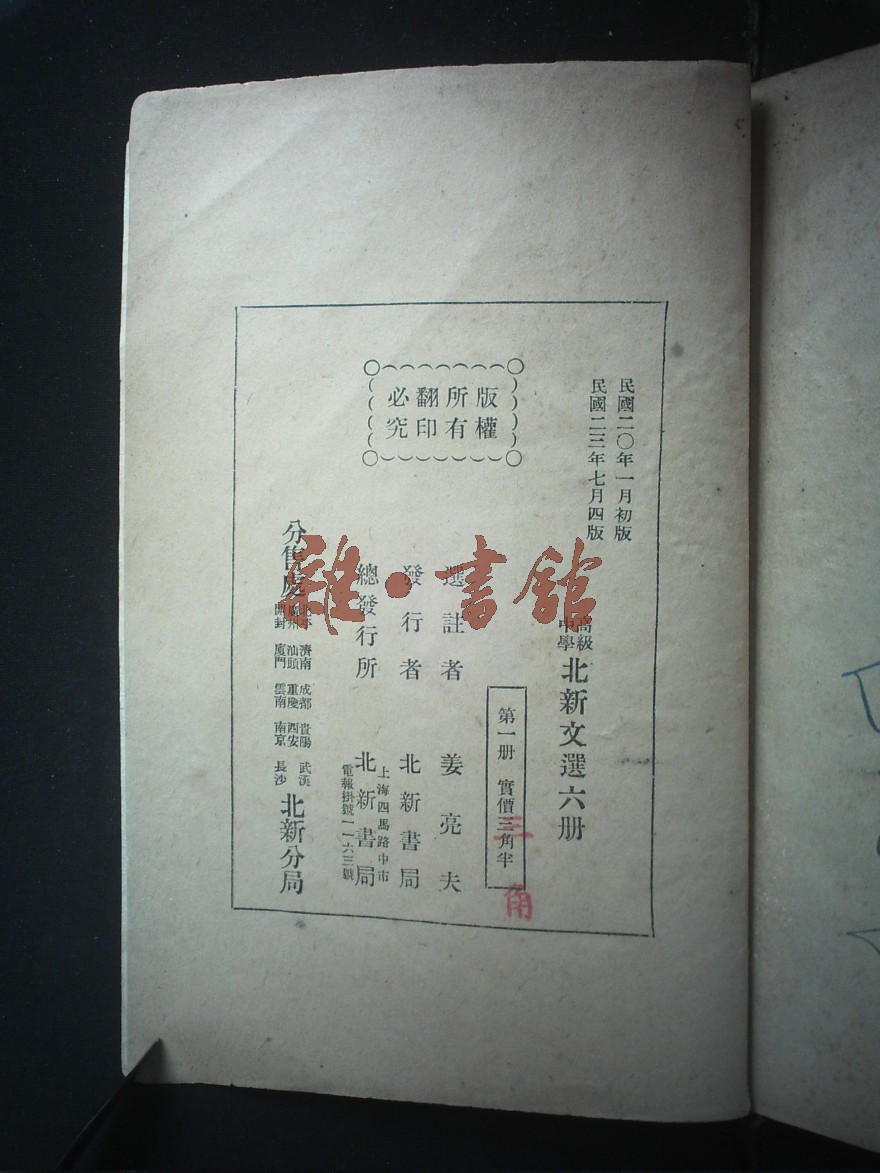 民國二〇年一月初版
民國二三年七月四版
高級中學 北新文選六册
第一册 實價三角半
三角
版權所有
翻印必究
選註者 姜亮夫
發行者 北新書局
總發行所 北新書局
上海四馬路中市
電報掛號一一六三號
分售處
北平 濟南 成都 貴陽 武漢
廣州 汕頭 重慶 西安
開封 廈門 雲南 南京 長沙
北新分局
雜·書館